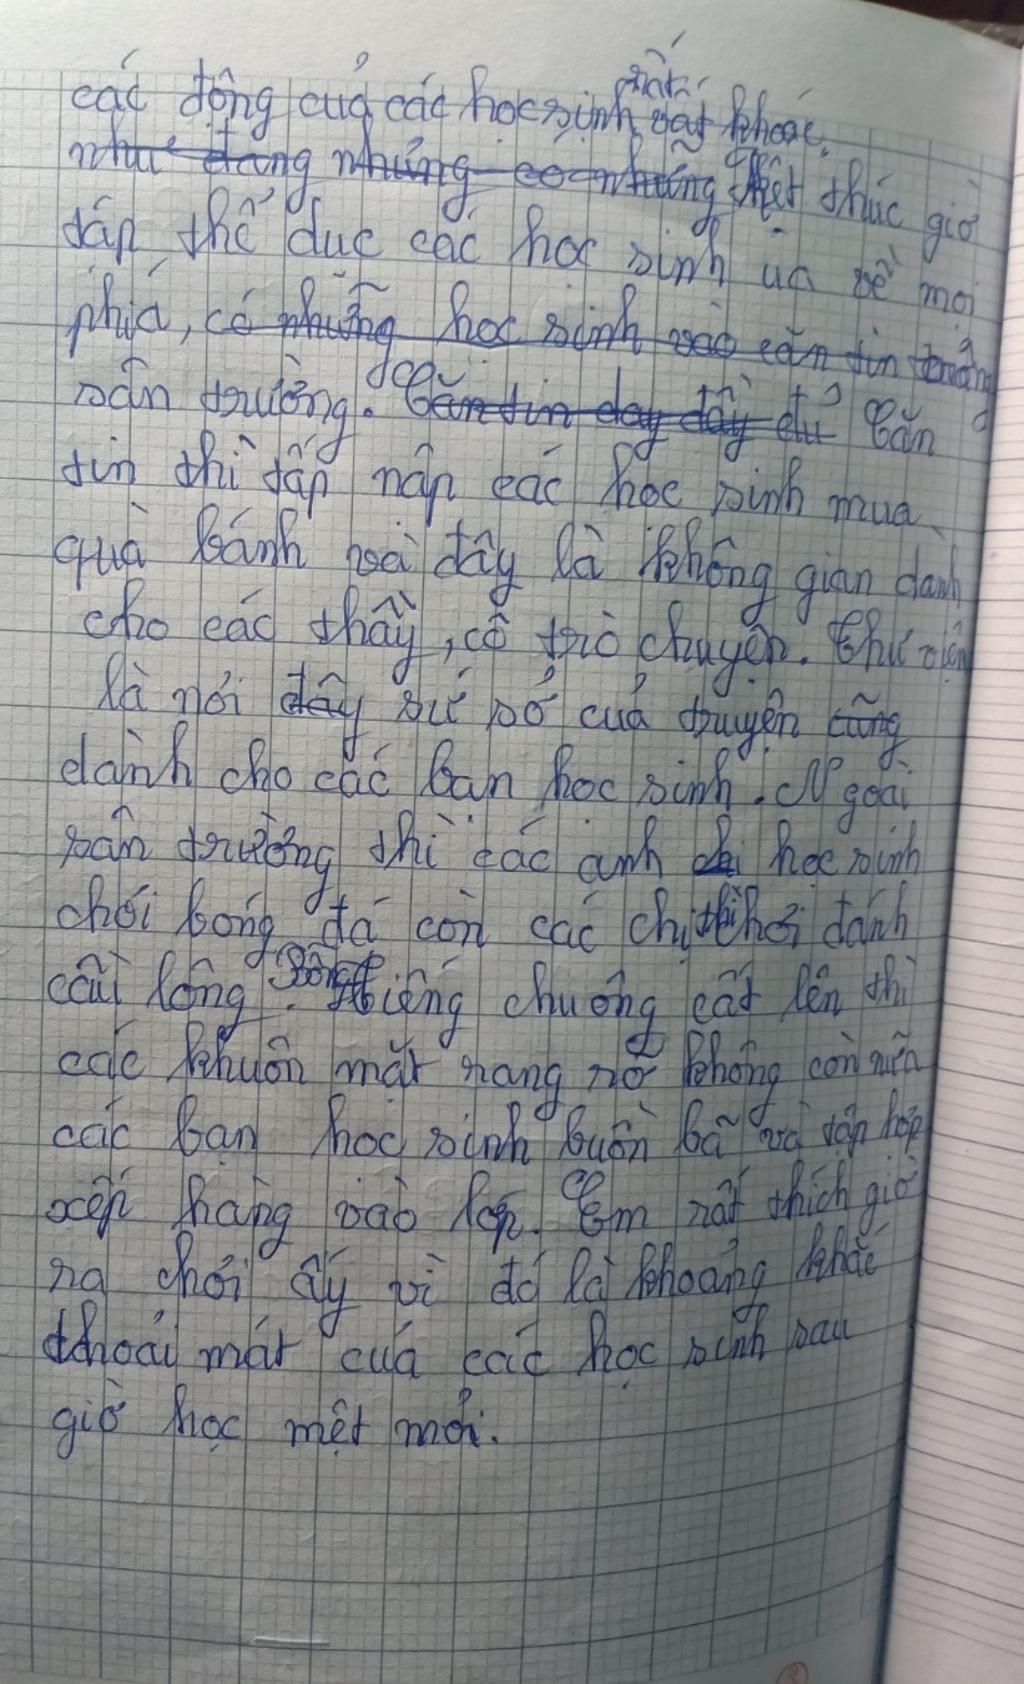 các động củả các học sinh rất vất khoát.
như đang những có những Kết thúc giờ
tấp thể dục các học sinh ùa về mọi
phía, có những học sinh vào căn tin trong
sân trường. Căn tin day đầy đủ Căn
tin thì tấp nập các học sinh mua
quà bánh với đây là không gian dành
cho các thầy, cô trò chuyện. Thư viện
là nới đây sứ số của truyện cũng
dành cho các bạn học sinh. Ngoài
sân trường thì các anh chị học sinh
chới bóng đá còn các chị thì chơi đánh
cầu lông. Bỗng tiếng chuông cất lên thì
các khuôn mặt rạng rở không còn nữa
các bạn học sinh buồn bã và tập hợp
xếp hàng vào lớp. Em rất thích giờ
ra chới ấy vì đó là khoảng khắc
thoải mát của các học sinh sau
giờ học mệt mỏi.